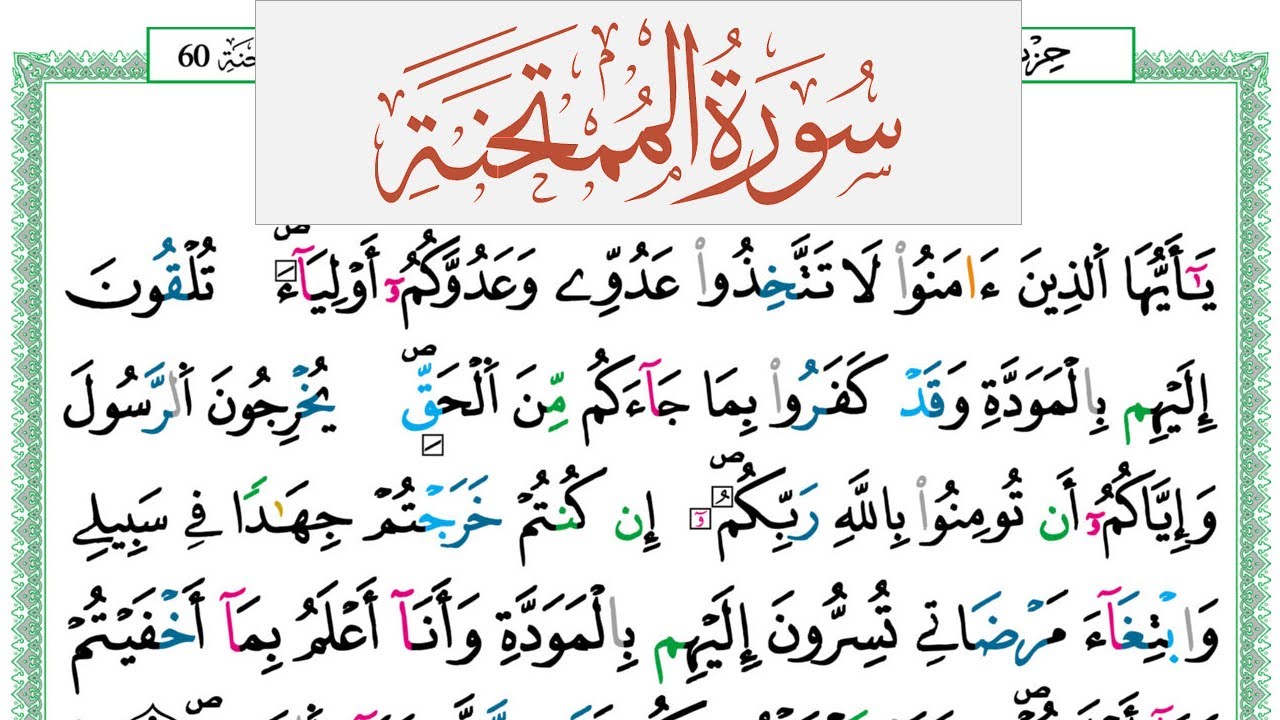 حِزْب
حنة 60
سُورَةُ الْمُمْتَحِنَةِ
يَٰٓأَيُّهَا اَ۬لذِينَ ءَامَنُواْ لَا تَتَّخِذُواْ عَدُوِّے وَعَدُوَّكُمُۥٓ أَوْلِيَآءَۖ تُلْقُونَ
إِلَيْهِم بِالْمَوَدَّةِ وَقَدْ كَفَرُواْ بِمَا جَآءَكُم مِّنَ اَ۬لْحَقِّۖ يُخْرِجُونَ اَ۬لرَّسُولَ
وَإِيَّاكُمُۥٓ أَن تُومِنُواْ بِاللَّهِ رَبِّكُمُۥٓۖ إِن كُنتُمْ خَرَجْتُمْ جِهَٰدًا فِے سَبِيلِے
وَابْتِغَآءَ مَرْضَاتِے تُسِرُّونَ إِلَيْهِم بِالْمَوَدَّةِ وَأَنَآ أَعْلَمُ بِمَآ أَخْفَيْتُمْ